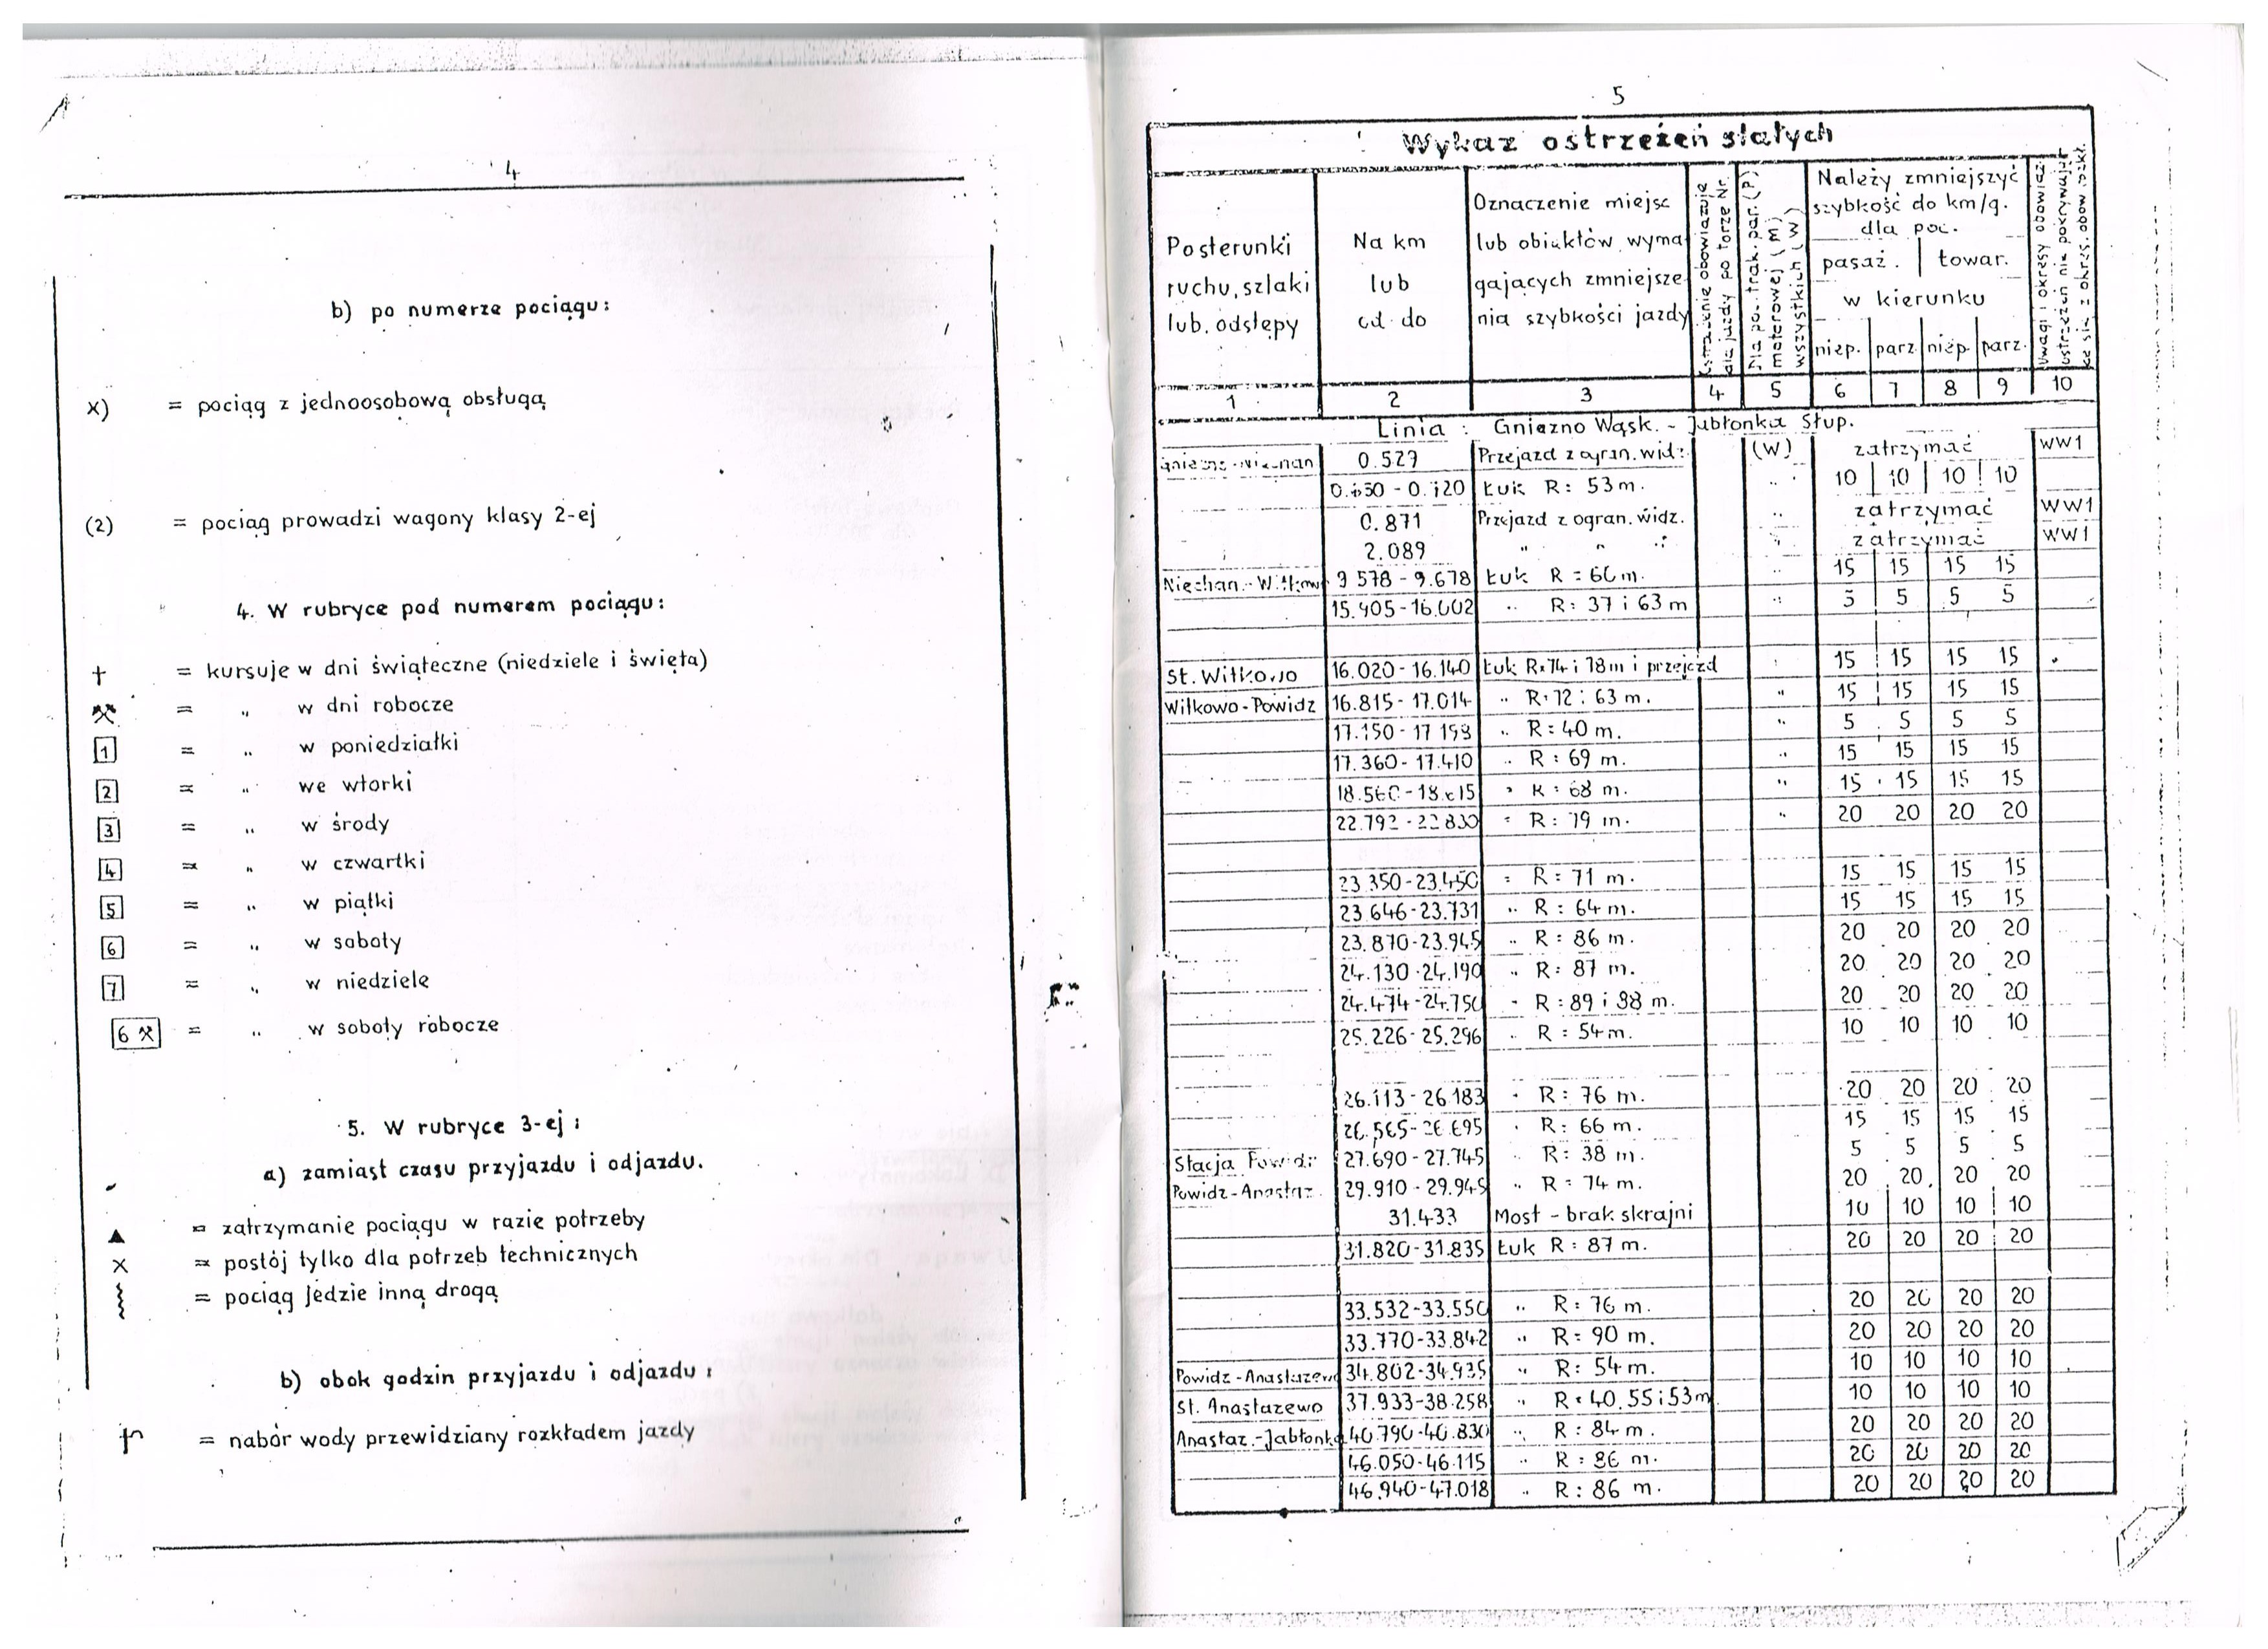 4
b) po numerze pociągu:
x) = pociąg z jednoosobową obsługą
(2) = pociąg prowadzi wagony klasy 2-ej
4. W rubryce pod numerem pociągu:
† = kursuje w dni świąteczne (niedziele i święta)
⚒ = „ w dni robocze
1 = „ w poniedziałki
2 = „ we wtorki
3 = „ w środy
4 = „ w czwartki
5 = „ w piątki
6 = „ w soboty
7 = „ w niedziele
6 ⚒ = „ w soboty robocze
5. W rubryce 3-ej:
a) zamiast czasu przyjazdu i odjazdu.
▲ = zatrzymanie pociągu w razie potrzeby
x = postój tylko dla potrzeb technicznych
= pociąg jedzie inną drogą
b) obok godzin przyjazdu i odjazdu:
= nabór wody przewidziany rozkładem jazdy
5
Wykaz ostrzeżeń stałych
Posterunki ruchu, szlaki lub. odstępy
Na km lub od do
Oznaczenie miejsc lub obiektów wymagających zmniejszenia szybkości jazdy
obowiązuje dla jazdy po torze Nr.
Dla poc. trak. par. (P) motorowej (M) wszystkich (W)
Należy zmniejszyć szybkość do km/g. dla poc.
pasaż. towar.
w kierunku
niep. parz. niep. parz.
Uwagi i okresy obowiąz. ostrzeżeń nie pokrywające się z okres. obow. rozkł.
1 2 3 4 5 6 7 8 9 10
Linia : Gniezno Wąsk. - Jabłonka Słup.
0.529 Przejazd z ogran. widz. (W) zatrzymać WW1
Łuk R: 53 m. 10 10 10 10
0.871 Przejazd z ogran. widz. zatrzymać WW1
2.089 „ „ zatrzymać WW1
Niechan.-Witkowo 9 578 - 9.678 Łuk 15 15 15 15
15.405-16.002 „ R: 37 i 63 m „ 5 5 5 5
St. Witkowo 16.020-16.140 Łuk R:74 i 78 m i przejazd 15 15 15 15
Witkowo-Powidz 16.815-17.014 „ R:72 i 63 m. „ 15 15 15 15
17.150-17 198 „ R:40 m. „ 5 5 5 5
17.360-17.410 „ R: 69 m. „ 15 15 15 15
R: 68 m. „ 15 15 15 15
22.792-22 830 „ R: 79 m. „ 20 20 20 20
23.350-23.450 „ R: 71 m. 15 15 15 15
23.646-23.731 „ R: 64 m. 15 15 15 15
23.870-23.945 „ R: 86 m. 20 20 20 20
24.130-24.190 „ R: 87 m. 20 20 20 20
24.474-24.750 „ 20 20 20 20
25.226-25.296 „ R: 54 m. 10 10 10 10
26.113-26 183 „ R: 76 m. 20 20 20 20
„ R: 66 m. 15 15 15 15
Stacja Powidz 27.690-27.745 „ R: 38 m. 5 5 5 5
Powidz-Anastaz. 29.910-29.945 „ R: 74 m. 20 20 20 20
31.433 Most - brak skrajni 10 10 10 10
31.820-31.835 Łuk R: 87 m. 20 20 20 20
33.532-33.550 „ R: 76 m. 20 20 20 20
33.770-33.842 „ R: 90 m. 20 20 20 20
Powidz-Anastazewo 34.802-34.935 „ R: 54 m. 10 10 10 10
St. Anastazewo 37.933-38.258 „ R: 40.55 i 53 m 10 10 10 10
Anastaz.-Jabłonka 40.790-40.830 „ R: 84 m. 20 20 20 20
46.050-46.115 „ R: 86 m. 20 20 20 20
46.940-47.018 „ R: 86 m. 20 20 20 20